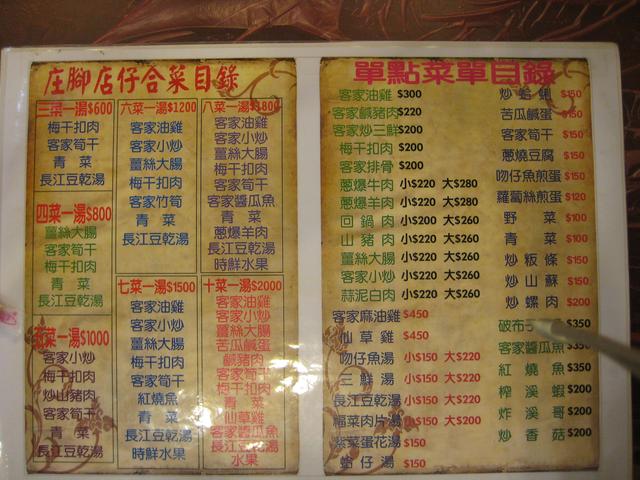 庄腳店仔合菜目錄
三菜一湯$600
梅干扣肉
客家筍干
青菜
長江豆乾湯
四菜一湯$800
薑絲大腸
客家筍干
梅干扣肉
青菜
長江豆乾湯
五菜一湯$1000
客家小炒
梅干扣肉
炒山豬肉
客家筍干
青菜
長江豆乾湯
六菜一湯$1200
客家油雞
客家小炒
薑絲大腸
梅干扣肉
客家竹筍
青菜
長江豆乾湯
七菜一湯$1500
客家油雞
客家小炒
薑絲大腸
梅干扣肉
客家筍干
紅燒魚
青菜
長江豆乾湯
時鮮水果
八菜一湯$1800
客家油雞
客家小炒
薑絲大腸
梅干扣肉
客家筍干
客家醬瓜魚
青菜
蔥爆羊肉
長江豆乾湯
時鮮水果
十菜一湯$2000
客家油雞
客家小炒
薑絲大腸
苦瓜鹹蛋
鹹豬肉
客家筍干
青菜
仙草雞
客家醬瓜魚
長江豆乾湯
水果
單點菜單目錄
客家油雞 $300
客家鹹豬肉$220
客家炒三鮮$200
梅干扣肉 $200
客家排骨 $200
蔥爆牛肉 小$220 大$280
蔥爆羊肉 小$220 大$280
回鍋肉 小$200 大$260
山豬肉 小$220 大$260
薑絲大腸 小$220 大$260
客家小炒 小$220 大$260
蒜泥白肉 小$220 大$260
客家麻油雞 $450
仙草雞 $450
吻仔魚湯 小$150 大$220
三鮮湯 小$150 大$220
長江豆乾湯 小$150 大$220
福菜肉片湯 小$150 大$200
紫菜蛋花湯 $150
蛤仔湯 $150
炒蛤蜊 $150
苦瓜鹹蛋 $150
客家筍干 $150
蔥燒豆腐 $150
吻仔魚煎蛋 $150
蘿蔔絲煎蛋 $120
野菜 $100
青菜 $100
炒粄條 $150
炒山蘇 $150
炒螺肉 $200
破布子 $350
客家醬瓜魚 $350
紅燒魚 $350
榨溪蝦 $200
炸溪哥 $200
炒香菇 $200